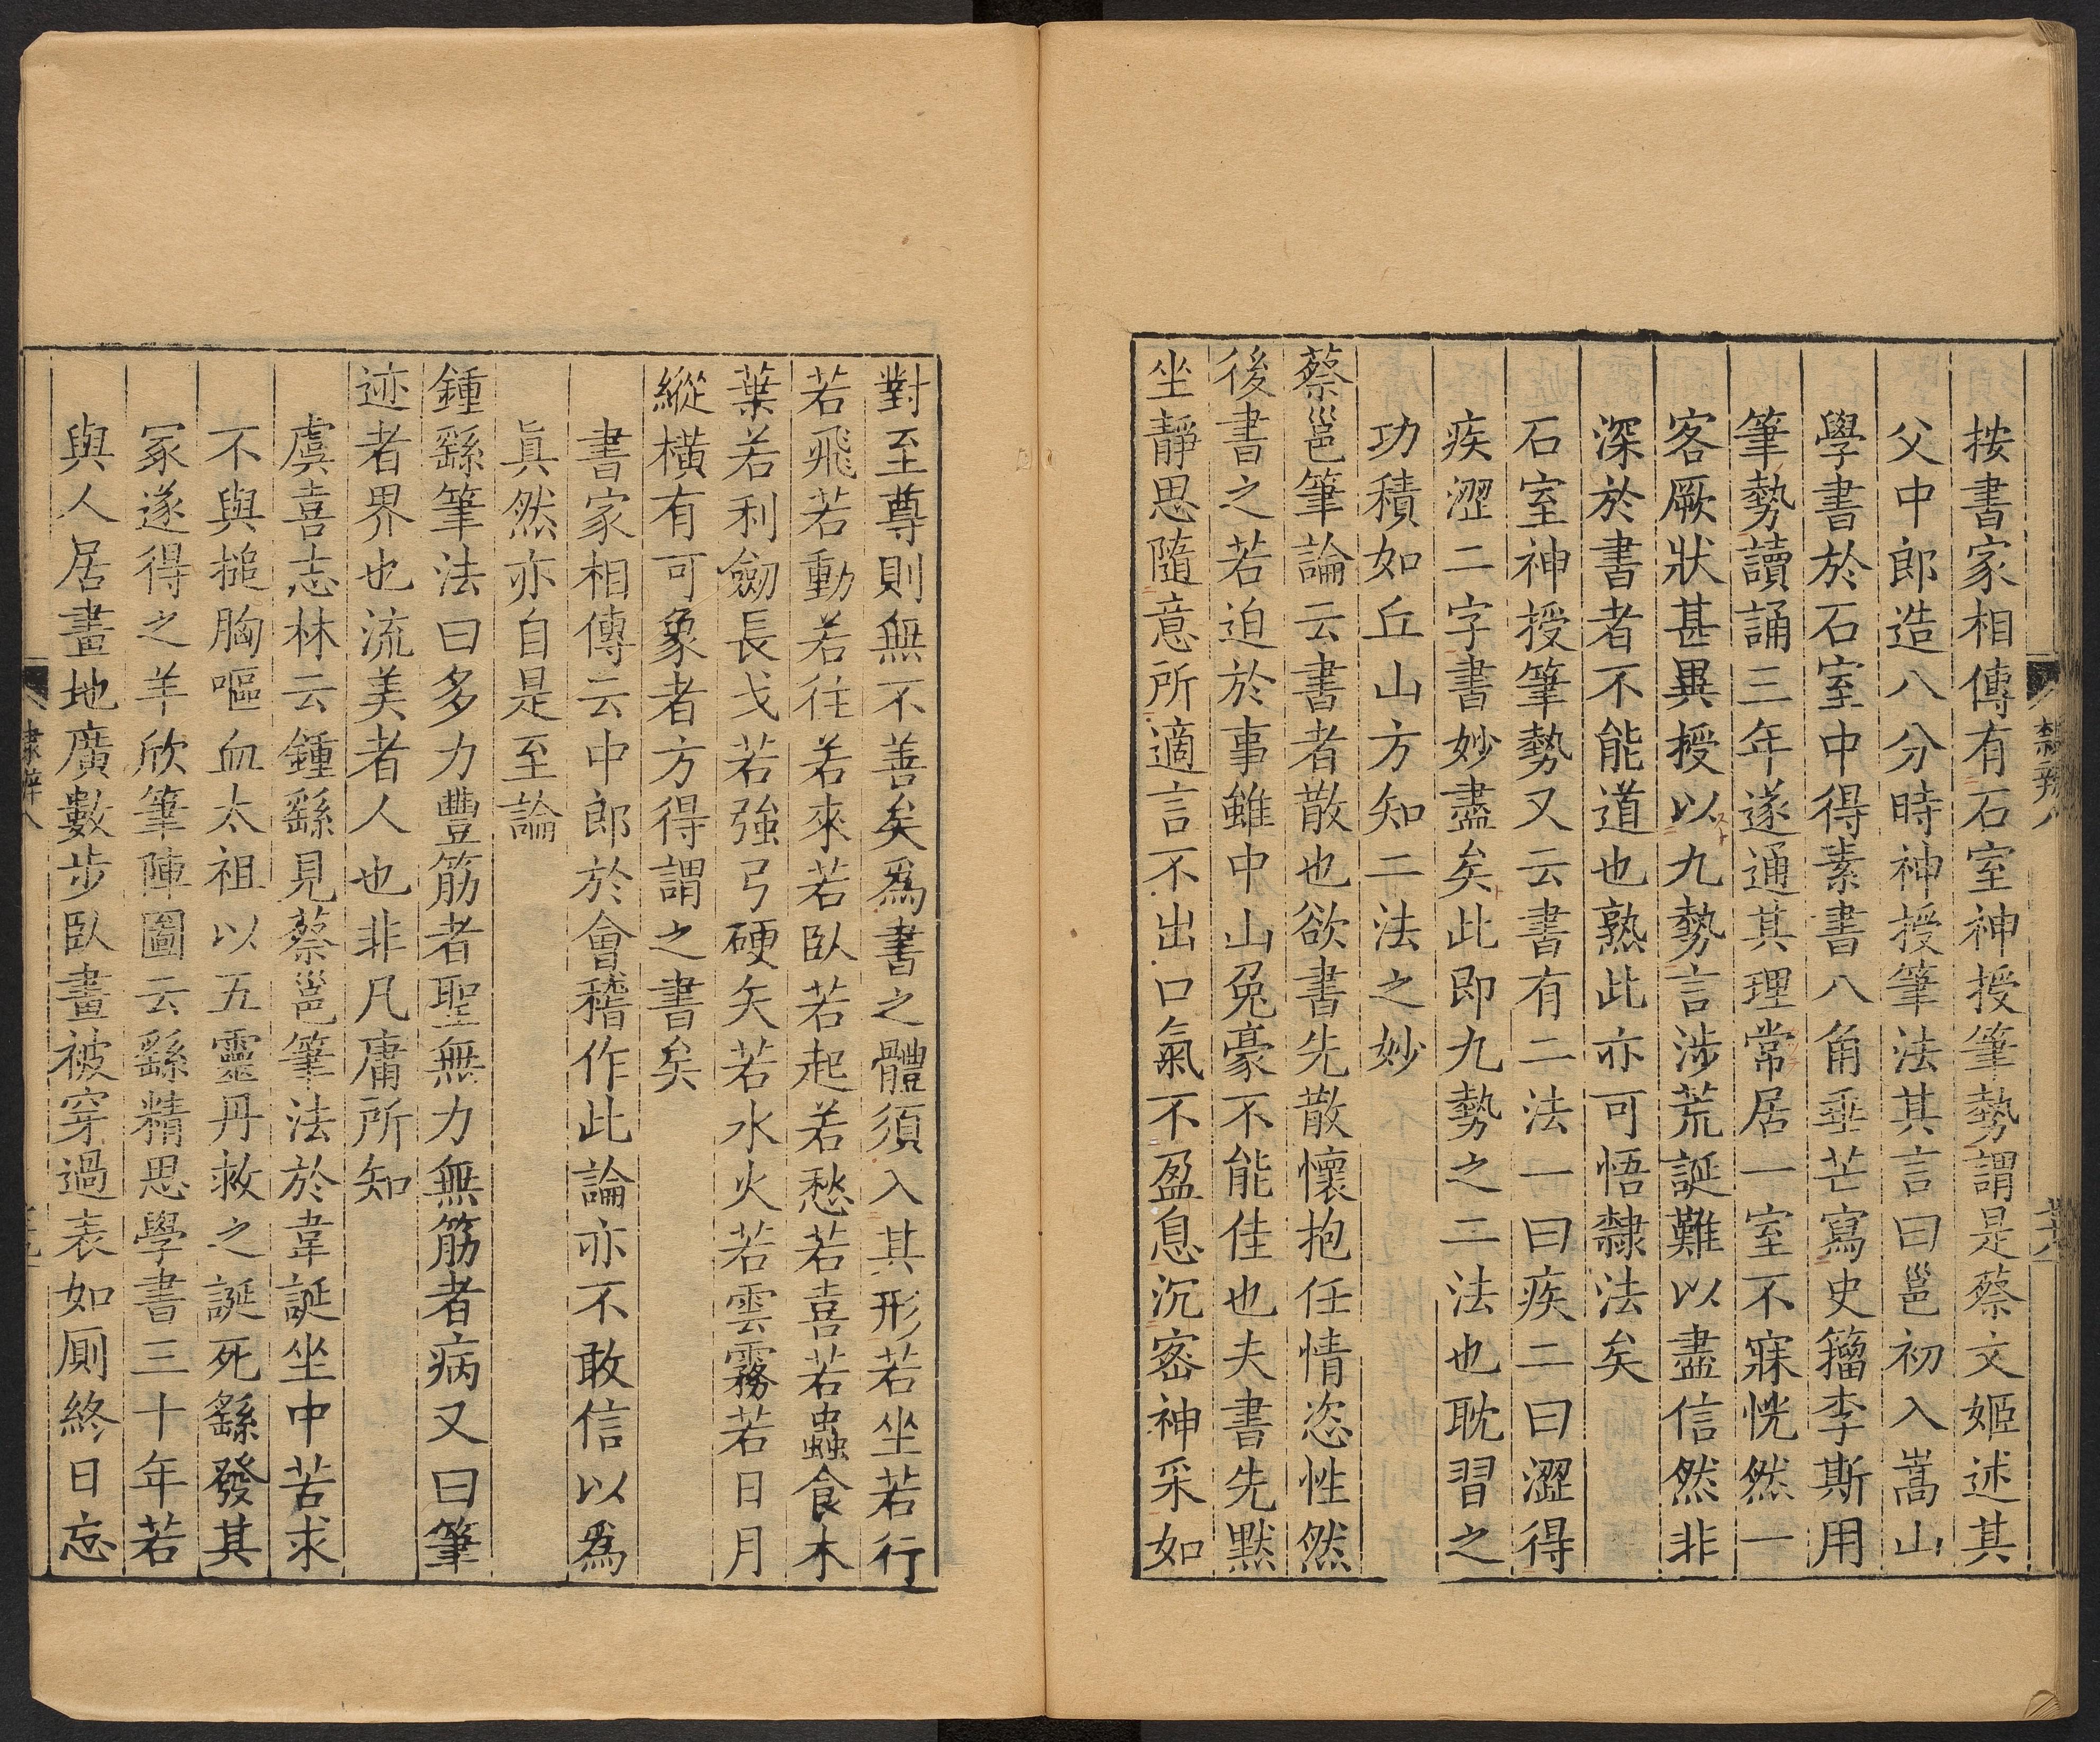 隸辨八
按書家相傳有石室神授筆勢謂是蔡文姬述其
父中郎造八分時神授筆法其言曰邕初入嵩山
學書於石室中得素書八角垂芒寫史籀李斯用
筆勢讀誦三年遂通其理常居一室不寐恍然一
客厥狀甚異授以九勢言涉荒誕難以盡信然非
深於書者不能道也熟此亦可悟隸法矣
石室神授筆勢又云書有二法一曰疾二曰澀得
疾澀二字書妙盡矣此即九勢之二法也耽習之
功積如丘山方知二法之妙
蔡邕筆論云書者散也欲書先散懷抱任情恣性然
後書之若迫於事雖中山兔豪不能佳也夫書先默
坐靜思隨意所適言不出口氣不盈息沉密神采如
對至尊則無不善矣爲書之體須入其形若坐若行
若飛若動若往若來若臥若起若愁若喜若蟲食木
葉若利劒長戈若強弓硬矢若水火若雲霧若日月
縱橫有可象者方得謂之書矣
書家相傳云中郎於會稽作此論亦不敢信以爲
眞然亦自是至論
鍾繇筆法曰多力豐筋者聖無力無筋者病又曰筆
迹者界也流美者人也非凡庸所知
虞喜志林云鍾繇見蔡邕筆法於韋誕坐中苦求
不與搥胸嘔血太祖以五靈丹救之誕死繇發其
冢遂得之羊欣筆陣圖云繇精思學書三十年若
與人居畫地廣數步臥畫被穿過表如厠終日忘
隸辨八